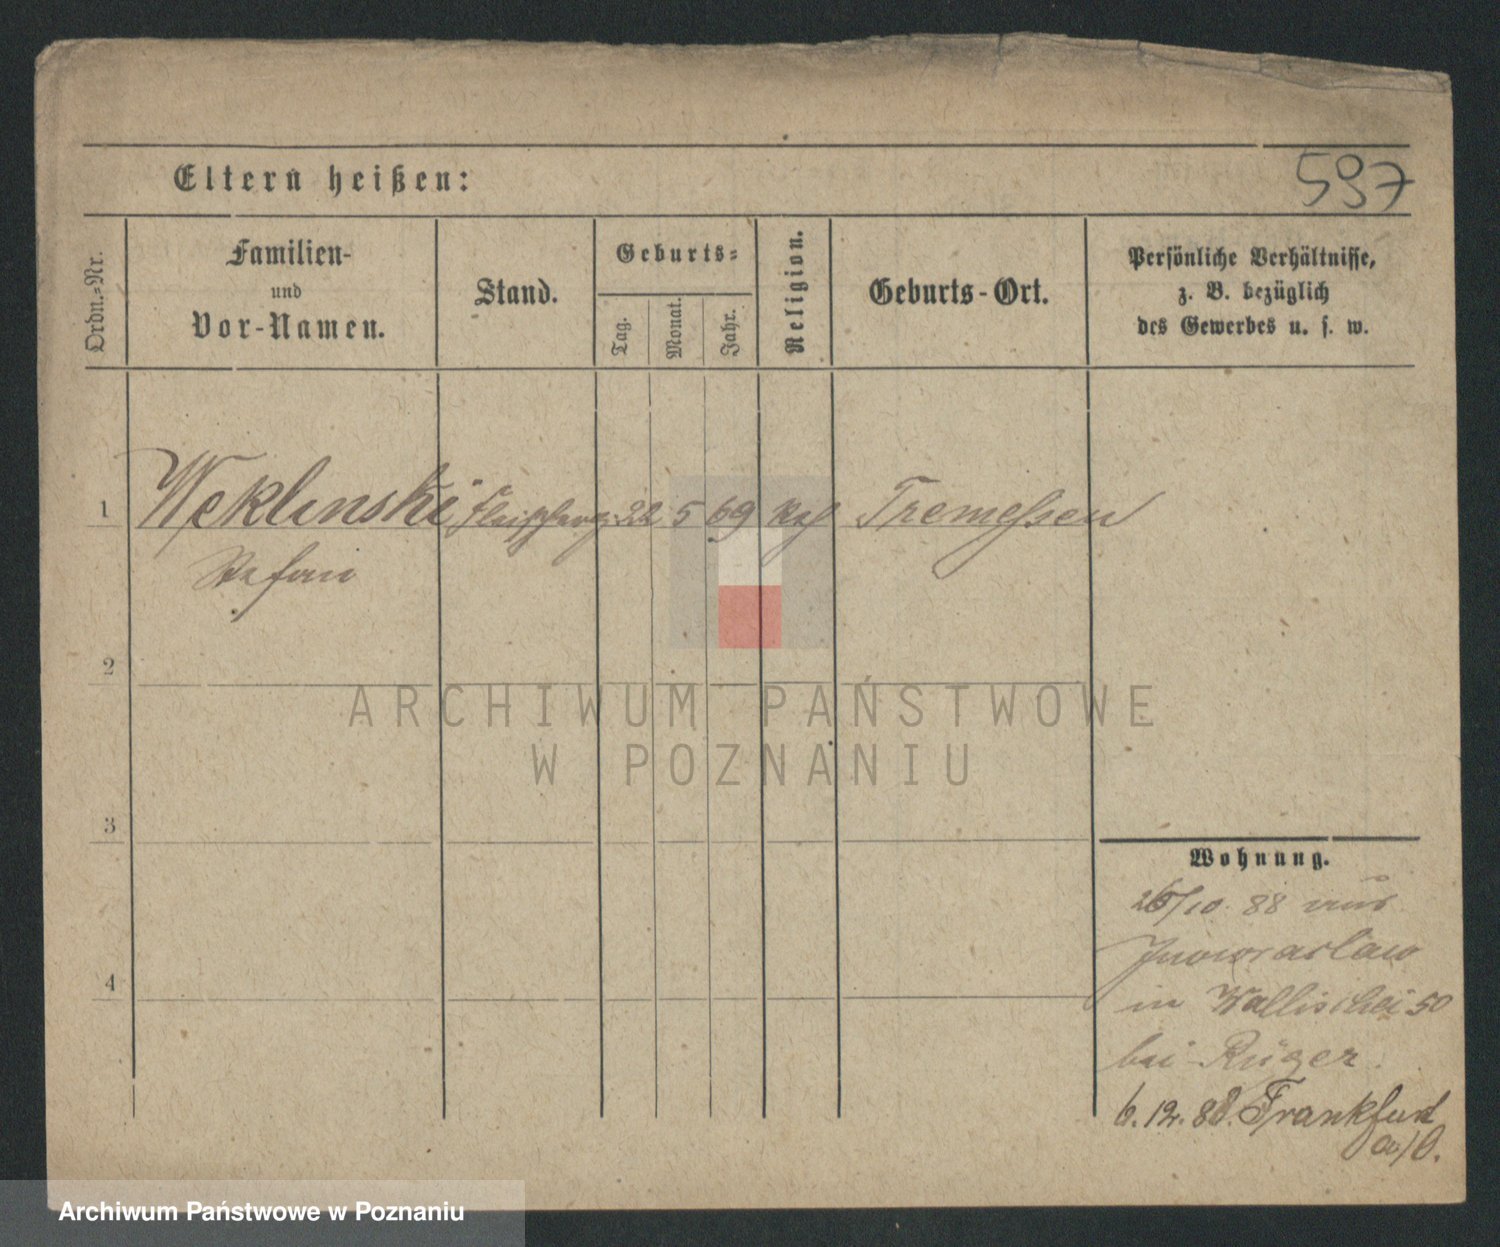 597
Eltern heißen:
Ordn.-Nr.
Familien-
und
Vor-Namen.
Stand.
Geburts-
Tag.
Monat.
Jahr.
Religion.
Geburts-Ort.
Persönliche Verhältnisse,
z. B. bezüglich
des Gewerbes u. s. w.
1 Weklinski 22 5 69 Kath Tremessen
Stefan
2
3
4
Wohnung.
26/10. 88 aus
Inowraclaw
in Wallischei 50
bei Rüger.
6. 12. 88. Frankfurt
a/O.
ARCHIWUM PAŃSTWOWE
W POZNANIU
Archiwum Państwowe w Poznaniu